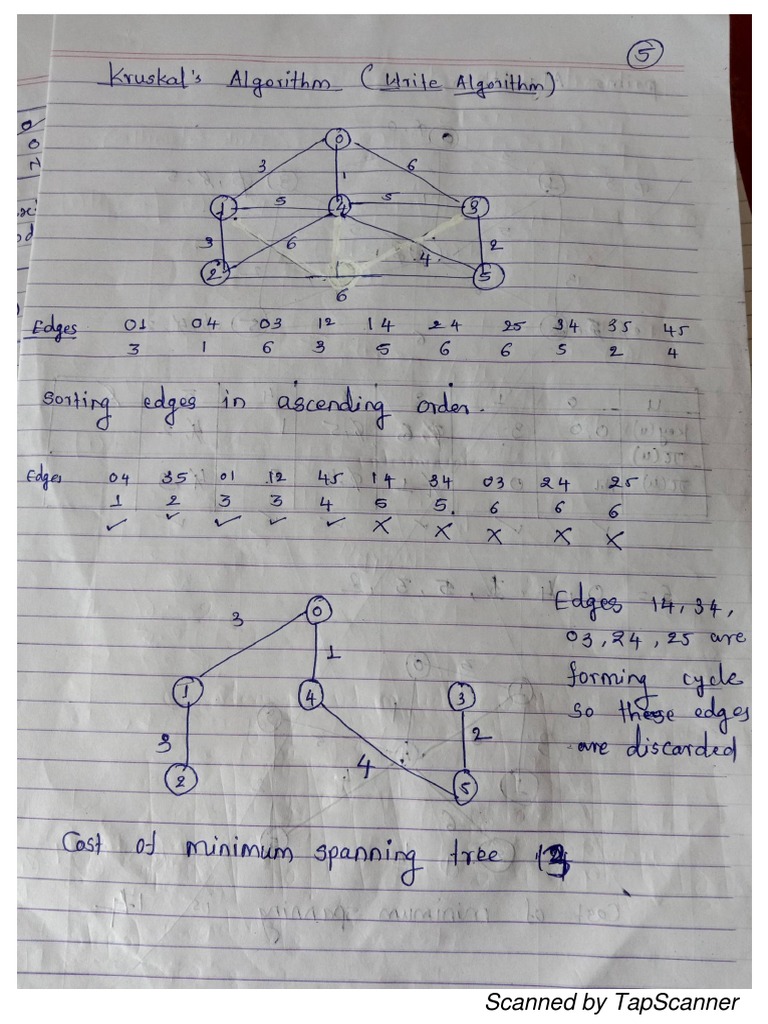 5
Kruskal's Algorithm (Write Algorithm)
0
3 1 6
1 5 4 5 3
3 6 4 2
2 5
6
Edges 01 04 03 12 14 24 25 34 35 45
3 1 6 3 5 6 6 5 2 4
Sorting edges in ascending order.
Edges 04 35 01 12 45 14 34 03 24 25
1 2 3 3 4 5 5. 6 6 6
✓ ✓ ✓ ✓ ✓ X X X X X
Edges 14, 34,
03, 24, 25 are
forming cycle
so these edges
are discarded
0
3 1
1 4 3
3 4 2
2 5
Cost of minimum spanning tree
Scanned by TapScanner